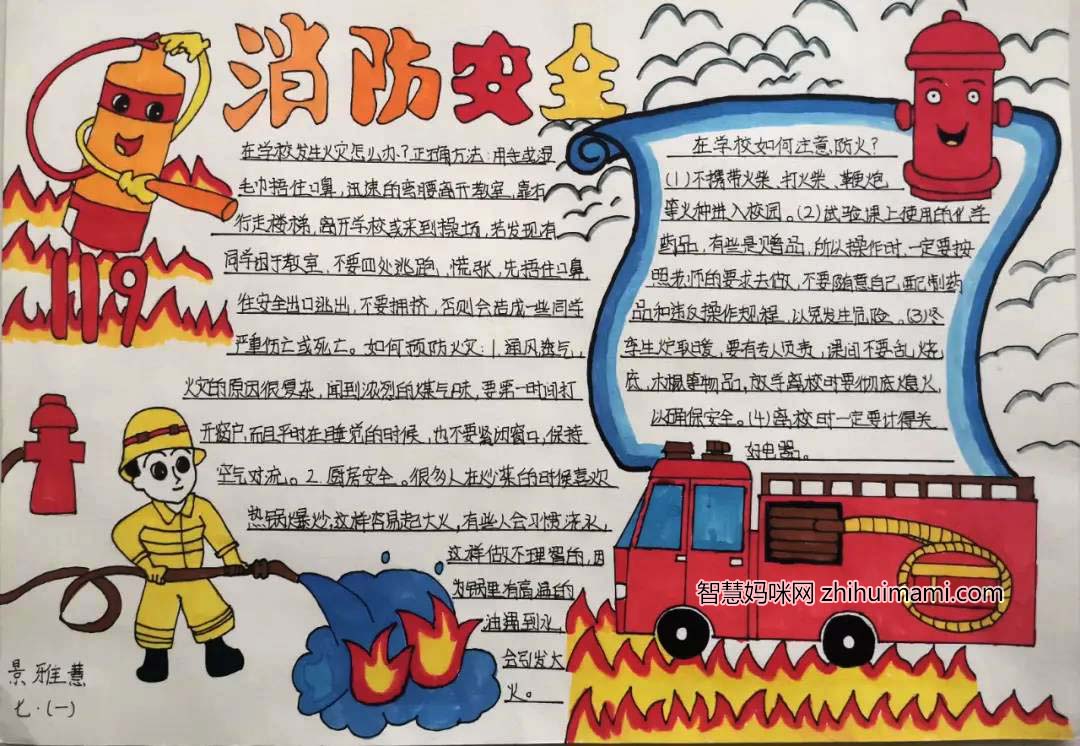 消防安全
119
在学校发生火灾怎么办?正确方法:用手或湿
毛巾捂住口鼻,迅速的弯腰离开教室,靠右
行走楼梯,离开学校或来到操场,若发现有
同学困于教室,不要四处逃跑,慌张,先捂住口鼻,
往安全出口逃出,不要拥挤,否则会造成一些同学
严重伤亡或死亡。如何预防火灾:1.通风透气,
火灾的原因很复杂,闻到浓烈的煤气味,要第一时间打
开窗户,而且平时在睡觉的时候,也不要紧闭窗口,保持
空气对流。2.厨房安全。很多人在炒菜的时候喜欢
热锅爆炒,这样容易起大火,有些人会习惯浇水,
这样做不理智的,因
为锅里有高温的
油遇到水
会引发大
火。
在学校如何注意防火?
(1)不携带火柴、打火柴、鞭炮
等火种进入校园。(2)试验课上使用的化学
药品,有些是赠品,所以操作时,一定要按
照老师的要求去做,不要随意自己配制药
品和违反操作规程,以免发生危险。(3)冬
季生炉取暖,要有专人负责,课间不要乱烧
底、木棍等物品,放学离校时要彻底熄火
以确保安全。(4)离校时一定要记得关
好电器。
智慧妈咪网 zhihuimami.com
景雅慧
七·(一)